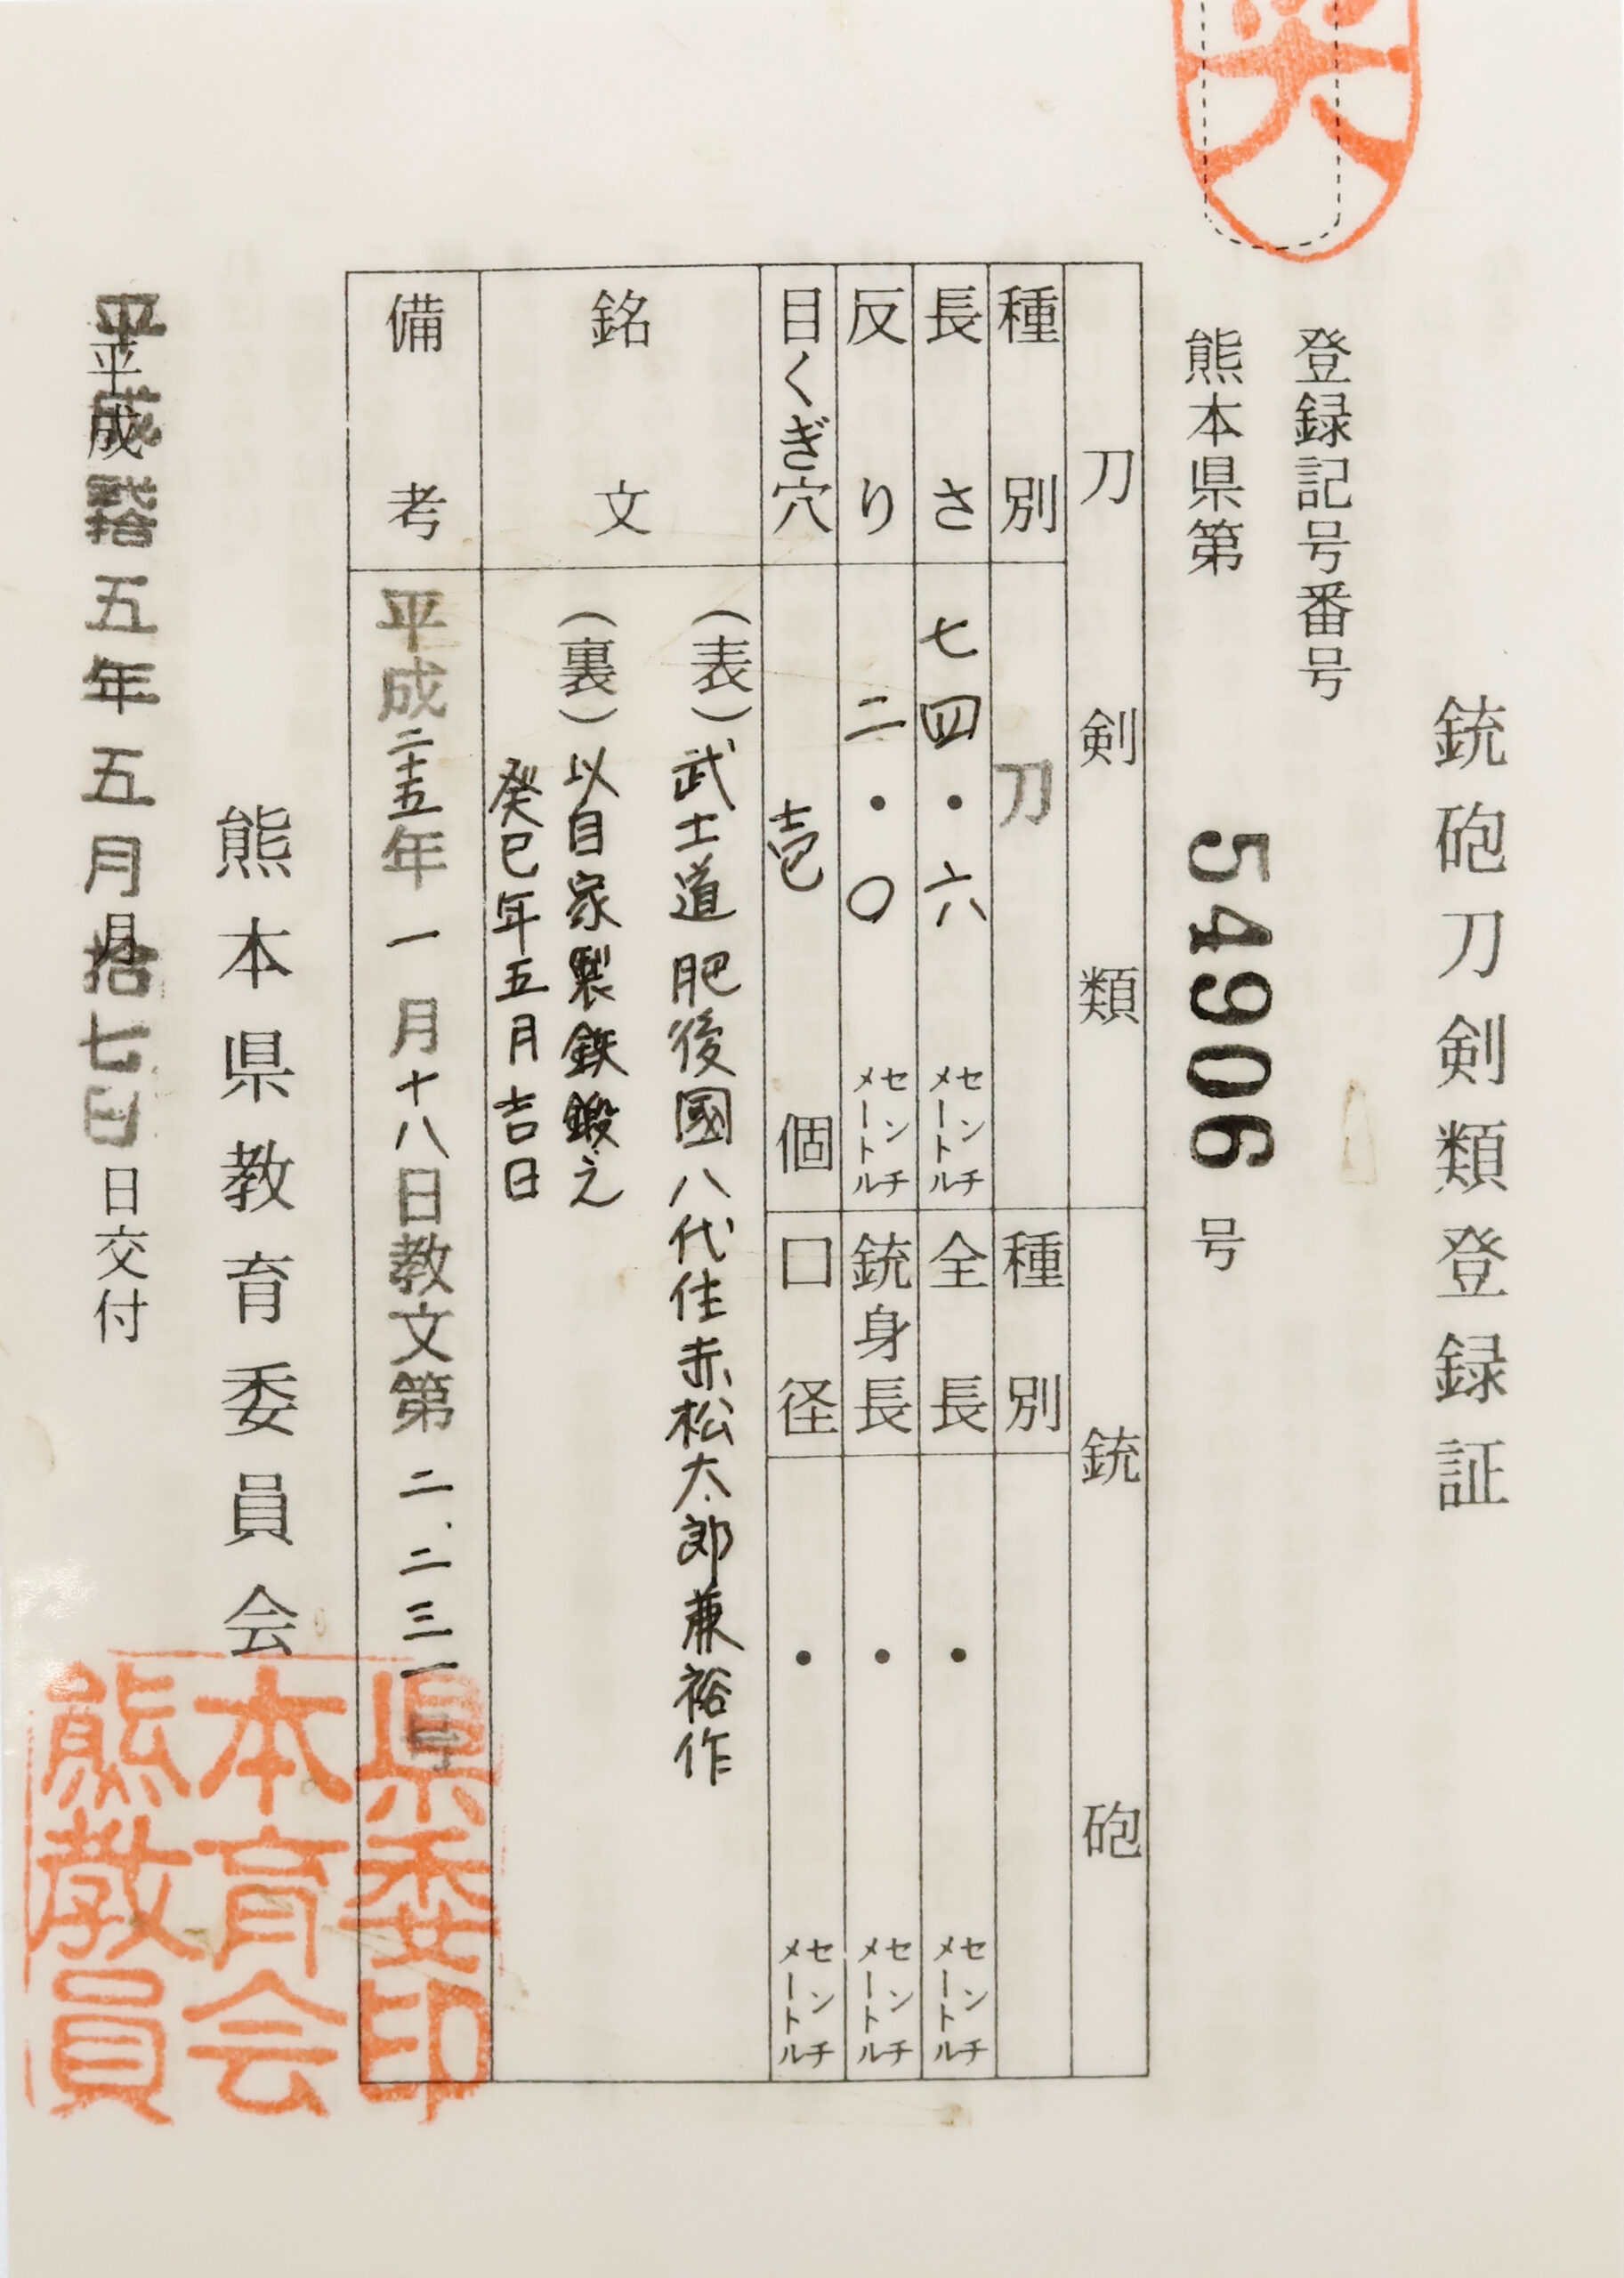 銃砲刀剣類登録証
登録記号番号
熊本県第 54906 号
刀剣類 銃砲
種別 刀 種別
長さ 七四・六 センチメートル 全長 ・ センチメートル
反り 二・〇 センチメートル 銃身長 ・ センチメートル
目くぎ穴 壱 個 口径 ・ センチメートル
銘文
(表)武士道 肥後國八代住赤松太郎兼裕作
(裏)以自家製鉄鍛之
癸巳年五月吉日
備考 平成二十五年一月十八日教文第二、二三一号
熊本県教育委員会
平成弐拾五年五月拾七日 日交付
熊本県教育委員会印